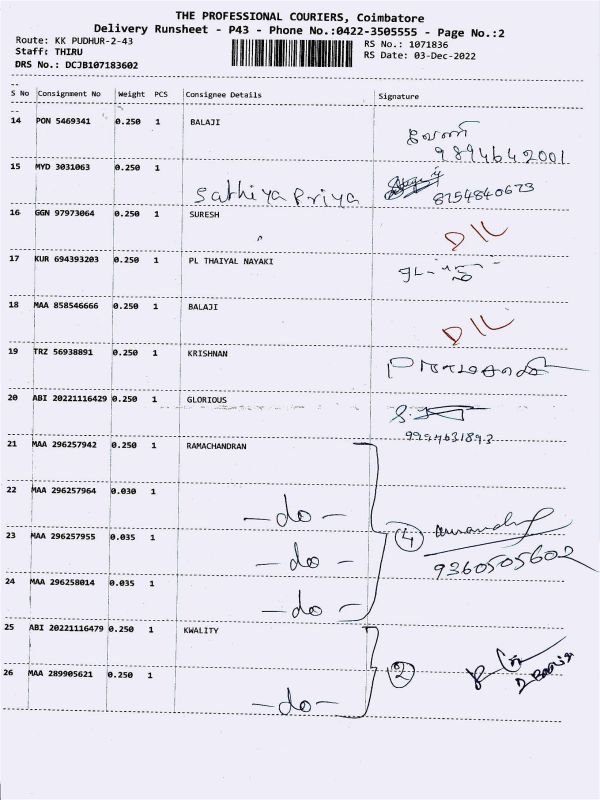 THE PROFESSIONAL COURIERS, Coimbatore
Delivery Runsheet - P43 - Phone No.:0422-3505555 - Page No.:2
Route: KK PUDHUR-2-43 RS No.: 1071836
Staff: THIRU RS Date: 03-Dec-2022
DRS No.: DCJB107183602
S No Consignment No Weight PCS Consignee Details Signature
14 PON 5469341 0.250 1 BALAJI
9894642001
15 MYD 3031063 0.250 1 Sathiya Priya 8754840673
16 GGN 97973064 0.250 1 SURESH D/L
17 KUR 694393203 0.250 1 PL THAIYAL NAYAKI
18 MAA 858546666 0.250 1 BALAJI D/L
19 TRZ 56938891 0.250 1 KRISHNAN
20 ABI 20221116429 0.250 1 GLORIOUS
21 MAA 296257942 0.250 1 RAMACHANDRAN
22 MAA 296257964 0.030 1 -do-
23 MAA 296257955 0.035 1 -do- 4
9360505602
24 MAA 296258014 0.035 1 -do-
25 ABI 20221116479 0.250 1 KWALITY
26 MAA 289905621 0.250 1 -do- 2